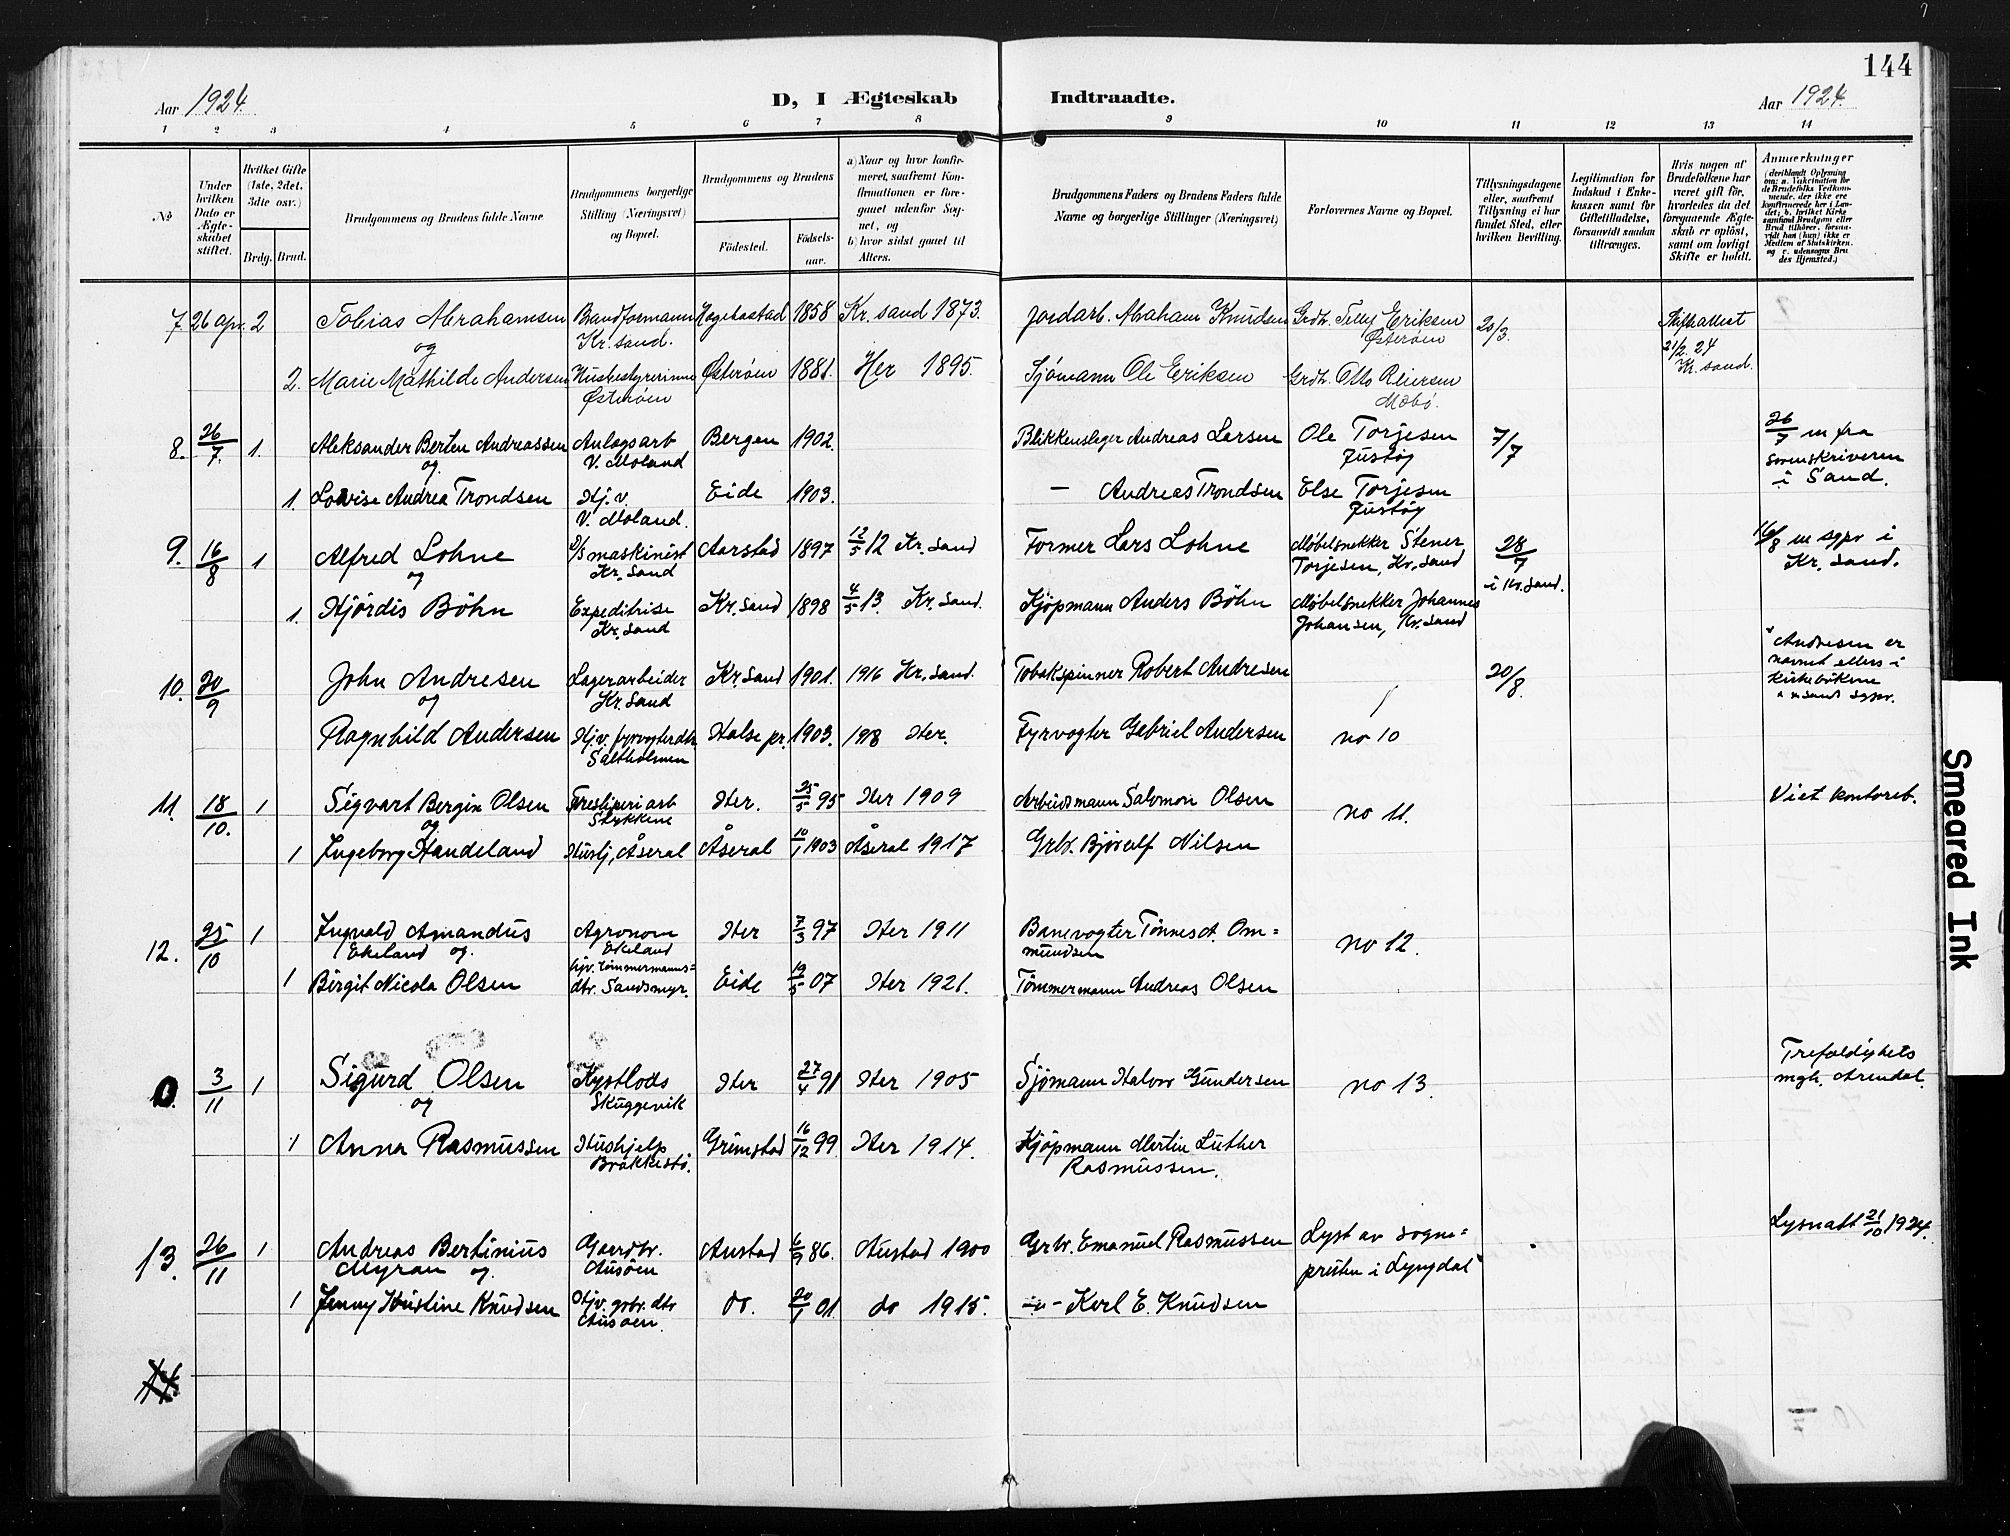 144
Aar 1924.
D, I Ægteskab Indtraadte.
Aar 1924.
1 2 3 4 5 6 7 8 9 10 11 12 13 14
№
Under hvilken Dato er Ægteskabet stiftet.
Hvilket Gifte (1ste, 2det, 3die osv.)
Brdg. Brud.
Brudgommens og Brudens fulde Navne
Brudgommens borgerlige Stilling (Næringsvei) og Bopæl.
Brudgommens og Brudens
Födested. Födselsaar.
a) Naar og hvor konfirmeret, saafremt Konfirmationen er foregaaet udenfor Sognet, og
b) hvor sidst gaaet til Alters.
Brudgommens Faders og Brudens Faders fulde Navne og borgerlige Stillinger (Næringsvei)
Forlovernes Navne og Bopæl.
Tillysningsdagene eller, saafremt Tillysning ei har fundet Sted, efter hvilken Bevilling.
Legitimation for Indskud i Enkekassen samt for Giftetilladelse, forsaavidt saadan tiltrænges.
Hvis nogen af Brudefolkene har været gift før, hvorledes da det foregaaende Ægteskab er oplöst, samt om lovligt Skifte er holdt.
Anmærkninger
7. 26 apr. 2 Tobias Abrahamsen Brandformann Hægebostad 1858 Kr. sand 1873. Jordarb. Abraham Knudsen Grdb. Telly Eriksen 20/3. Skifteattest
og Kr. sand. Østerøen 21/2 24
2. Marie Mathilde Andersen Husbestyrerinne Østerøen 1881. Her 1895. Sjømann Ole Eriksen Grdb. Otto Reiersen Kr. sand.
Østerøen Mæbø.
8. 26/7. 1. Aleksander Berten Andreassen Anlægsarb Bergen 1902. Blikkenslager Andreas Larsen Ole Torjesen 7/7 26/7 m fra
og V. Moland Justøy sorenskriveren
1. Lovise Andrea Trondsen Hj. v. Eide 1903. — Andreas Trondsen Else Torjesen i Sand.
V. Moland. Justøy
9. 16/8 1 Alfred Lohne D/S maskinist Aarstad 1897 12/5 12 Kr. Sand Former Lars Lohne Møbelsnekker Stener 28/7 16/8 m sgpr i
og Kr. Sand Torjesen, Kr. Sand i Kr. Sand. Kr. Sand.
1. Hjørdis Bøhn Expeditrise Kr. Sand 1898 4/5 13. Kr. Sand. Kjøpmann Anders Bøhn Møbelsnekker Johannes
Kr. Sand Johansen, Kr. Sand
10. 20/9 John Andresen Lagerarbeider Kr. Sand 1901. 1916 Kr. Sand. Tobakspinner Robert Andresen 20/8. Andresen er
og Kr. Sand navnet ellers i
Kirkebøkene
Ragnhild Andersen Hj. v. fyrvogterdtr. Halse pr. 1903. 1918 Her. Fyrvogter Gabriel Andersen no 10
Saltholmen
11. 18/10. 1 Sigvart Bergin Olsen arb Her. 25/5 95 Her 1909 Arbeidsmann Salomon Olsen no 11. Viet kontoret.
og Stykkene
1 Ingeborg Handeland Hushj, Åseral Åseral 10/1 1903 Åseral 1917 Grbr. Bjørulf Nilsen
12. 25/10 1 Ingvald Amandus Agronom Her 7/3 97 Her 1911 Banevogter Tønnes A. Om=
Ekeland og Ekeland mundsen no 12.
1 Birgit Nicola Olsen hjv. tømmermanns= Eide 19/5 07 Her 1921. Tømmermann Andreas Olsen
dtr. Sandsmyr.
3/11 1 Sigurd Olsen Kystlods Her 27/4 91 Her 1905 Sjømann Halvor Gundersen no 13. Trefoldighets
og Skuggevik mgh. Arendal.
1 Anna Rasmussen Hushjelp Grimstad 16/12 99 Her 1914. Kjøpmann Martin Luther
Brækkestø. Rasmussen.
13. 26/11 1 Andreas Bertinius Gaardbr. Austad 6/9 86. Austad 1900 Grbr. Emanuel Rasmussen Lyst av sogne= Lysnatt 21/10 1924.
Myran og Ausøen presten i Lyngdal
1 Jenny Kristine Knudsen Hjv. grbr. dtr do. 20/1 01. do 1915. —„— Karl E. Knudsen
Ausøen
14
Smeared Ink